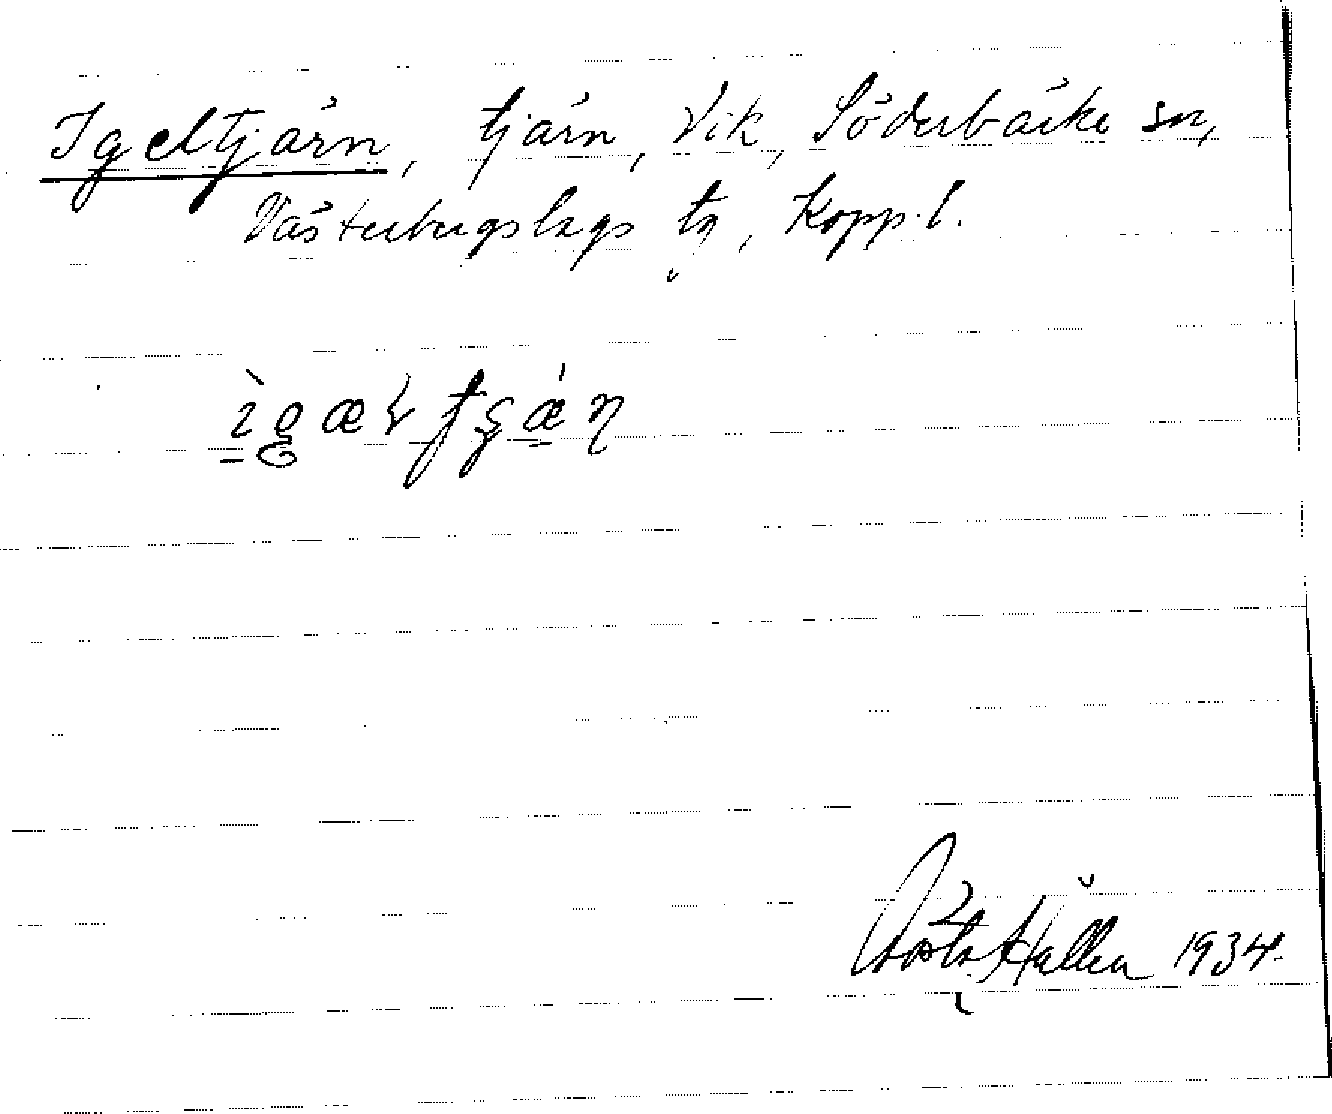 Igeltjärn, tjärn, Vik, Söderbärke sn,
Västerbergslags tg, Kopp. l.
Gösta Hallen 1934.